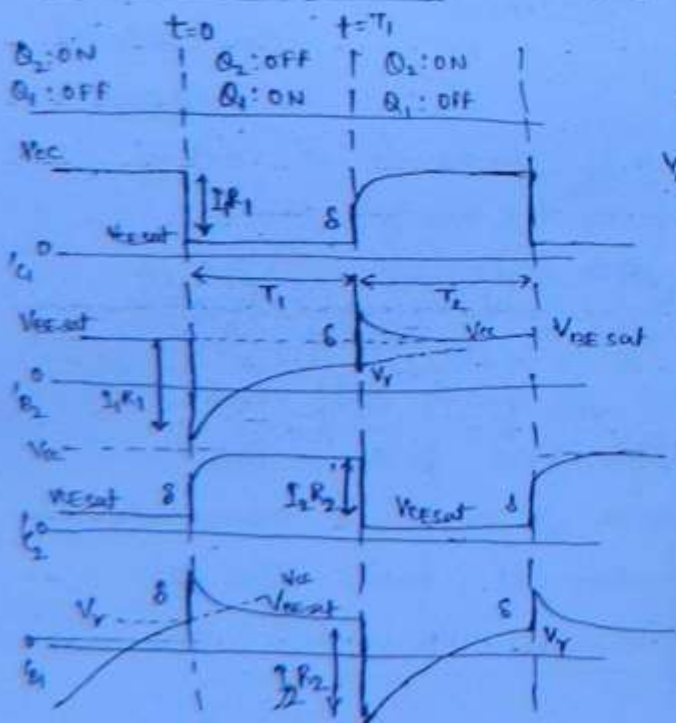 t=0 t=T1
Q2: ON Q2: OFF Q2: ON
Q1: OFF Q1: ON Q1: OFF
VCC
I1R1
VCE sat δ
0
T1 T2
VBE sat δ VCC VBE sat
0 Vγ
I1R1
VCC
VCE sat δ I2R2 VCE sat δ
0
δ VCC
Vγ VBE sat δ
0 Vγ
I2R2